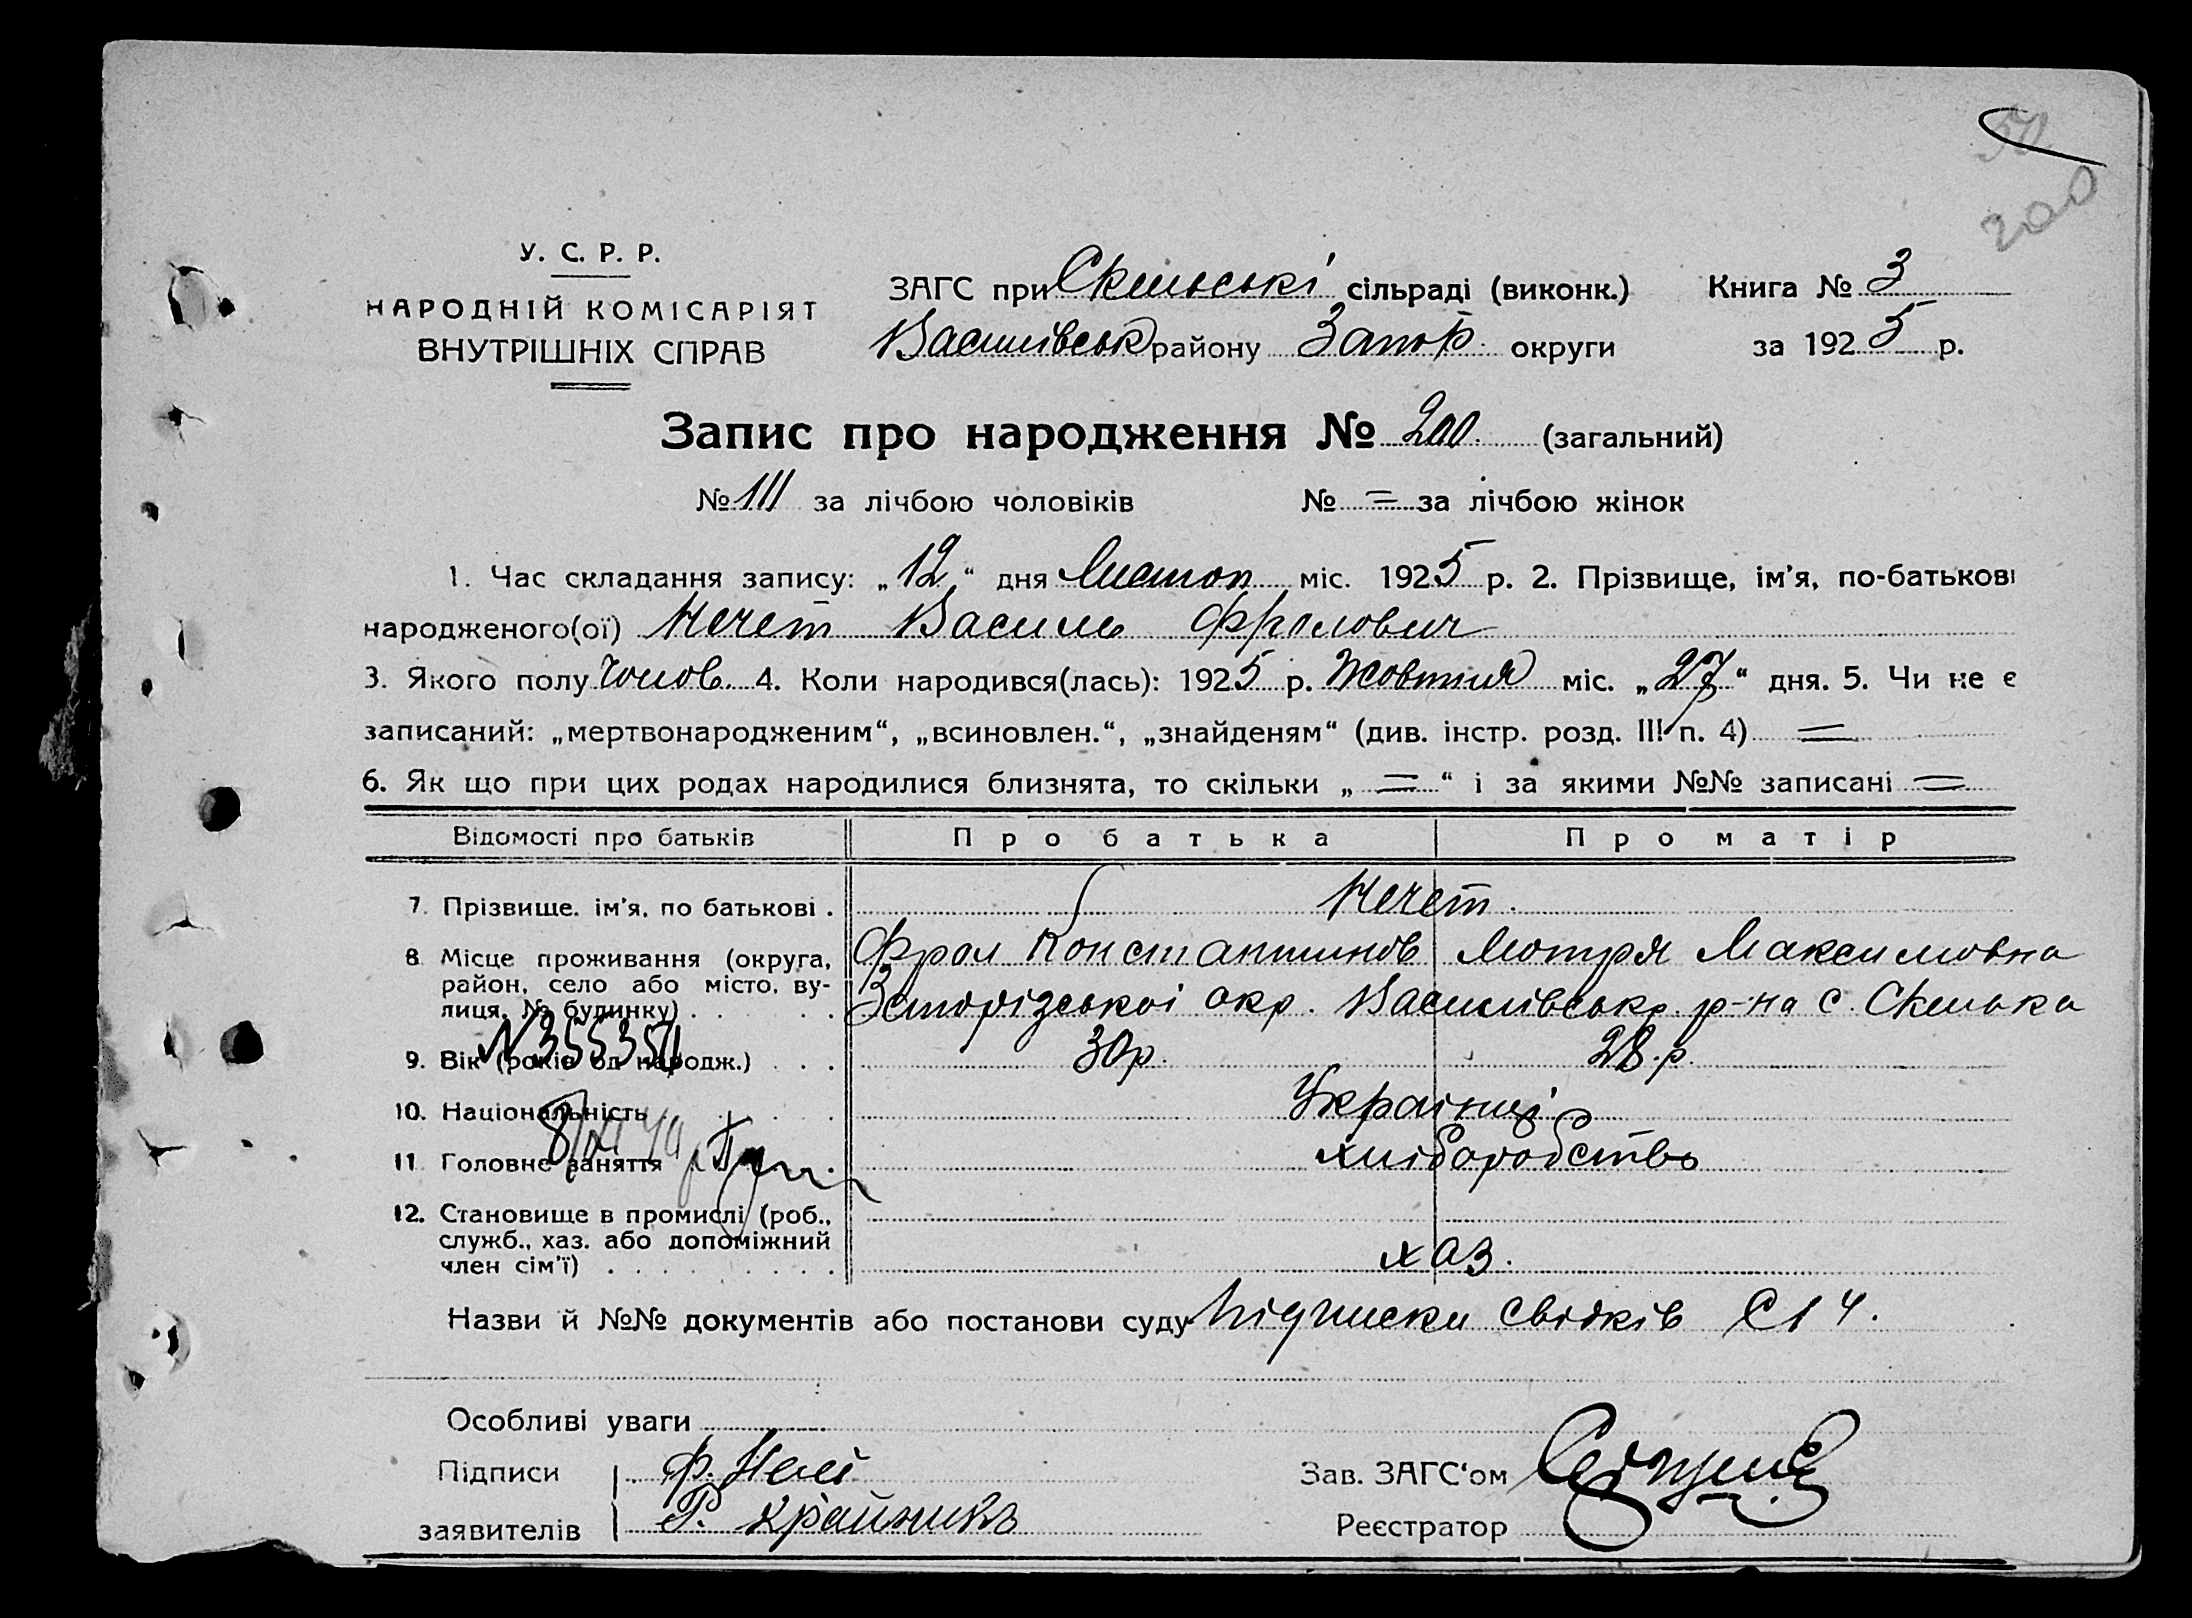 50
200
У. С. Р. Р.
НАРОДНІЙ КОМІСАРІЯТ
ВНУТРІШНІХ СПРАВ
ЗАГС при Скельські сільраді (виконк.) Книга № 3
Василівськ району Запор. округи за 1925 р.
Запис про народження № 200. (загальний)
№ 111 за лічбою чоловіків № = за лічбою жінок
1. Час складання запису: „12“ дня Листоп міс. 1925 р. 2. Прізвище, ім'я, по-батькові
народженого(ої) Нечет Василь Фролович
3. Якого полу Чолов. 4. Коли народився(лась): 1925 р. Жовтня міс. „27“ дня. 5. Чи не є
записаний: „мертвонародженим“, „всиновлен.“, „знайденям“ (див. інстр. розд. III п. 4) =
6. Як що при цих родах народилися близнята, то скільки „ = “ і за якими №№ записані =
Відомості про батьків Про батька Про матір
7. Прізвище, ім'я, по батькові . Нечет.
Фрол Константинов Мотря Максимовна
8. Місце проживання (округа,
район, село або місто, ву-
лиця, № будинку) . . . . Запорізської окр. Василівськ. р-на с. Скелька
N355350
9. Вік (років од народж.) . . . 30 р. 28. р.
10. Національність Українці
11. Головне заняття хліборобство
12. Становище в промислі (роб.,
служб., хаз. або допоміжний
член сім'ї) . . . . . . . . . хаз.
Назви й №№ документів або постанови суду Підписки свідків С14.
Особливі уваги
Підписи Ф. Нечет Зав. ЗАГС'ом
заявителів Р. Крайникъ Реєстратор